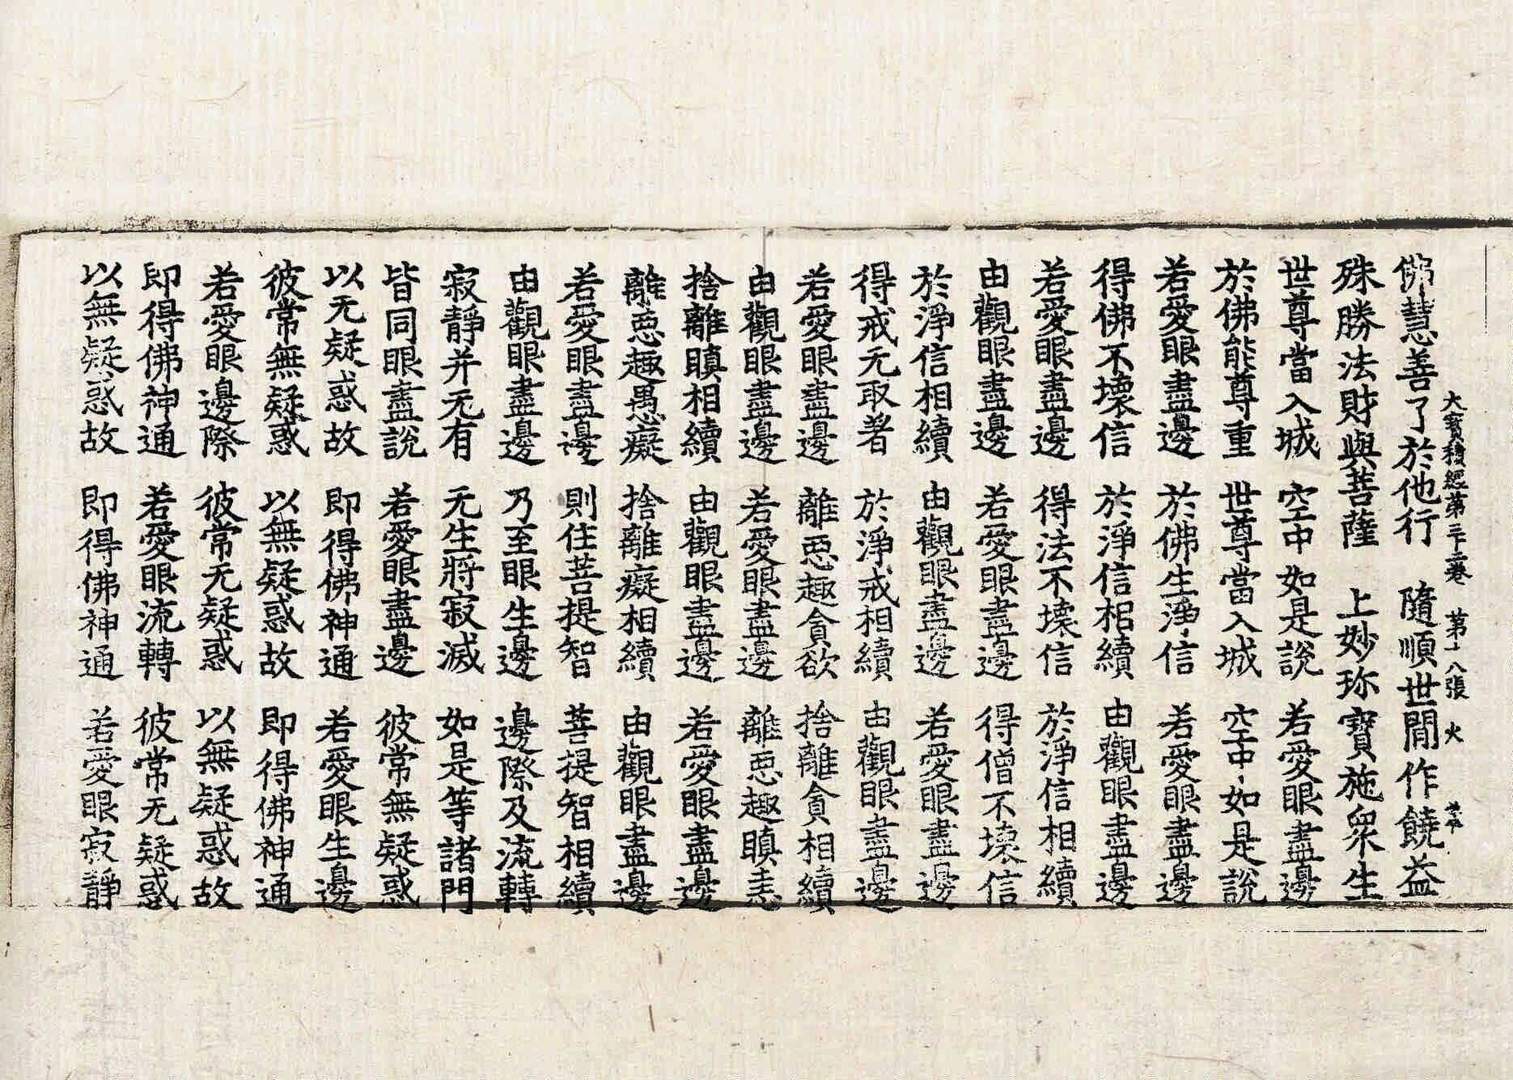 大寶積經第三十三卷　第十八張　火
佛慧善了於他行　隨順世間作饒益
殊勝法財與菩薩　上妙珎寶施衆生
世尊當入城　空中如是說　若愛眼盡邊
於佛能尊重　世尊當入城　空中如是說
若愛眼盡邊　於佛生淨信　若愛眼盡邊
得佛不壞信　於淨信相續　由觀眼盡邊
若愛眼盡邊　得法不壞信　於淨信相續
由觀眼盡邊　若愛眼盡邊　得僧不壞信
於淨信相續　由觀眼盡邊　若愛眼盡邊
得戒无取著　於淨戒相續　由觀眼盡邊
若愛眼盡邊　離惡趣貪欲　捨離貪相續
由觀眼盡邊　若愛眼盡邊　離惡趣瞋恚
捨離瞋相續　由觀眼盡邊　若愛眼盡邊
離惡趣愚癡　捨離癡相續　由觀眼盡邊
若愛眼盡邊　則住菩提智　菩提智相續
由觀眼盡邊　乃至眼生邊　邊際及流轉
寂靜并无有　无生將寂滅　如是等諸門
皆同眼盡說　若愛眼盡邊　彼常無疑惑
以无疑惑故　即得佛神通　若愛眼生邊
彼常無疑惑　以無疑惑故　即得佛神通
若愛眼邊際　彼常无疑惑　以無疑惑故
即得佛神通　若愛眼流轉　彼常无疑惑
以無疑惑故　即得佛神通　若愛眼寂靜